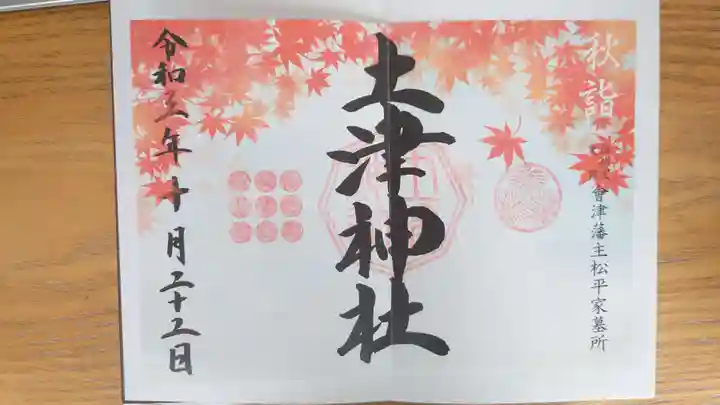 秋詣
會津藩主松平家墓所
土津神社
令和三年十月二十二日